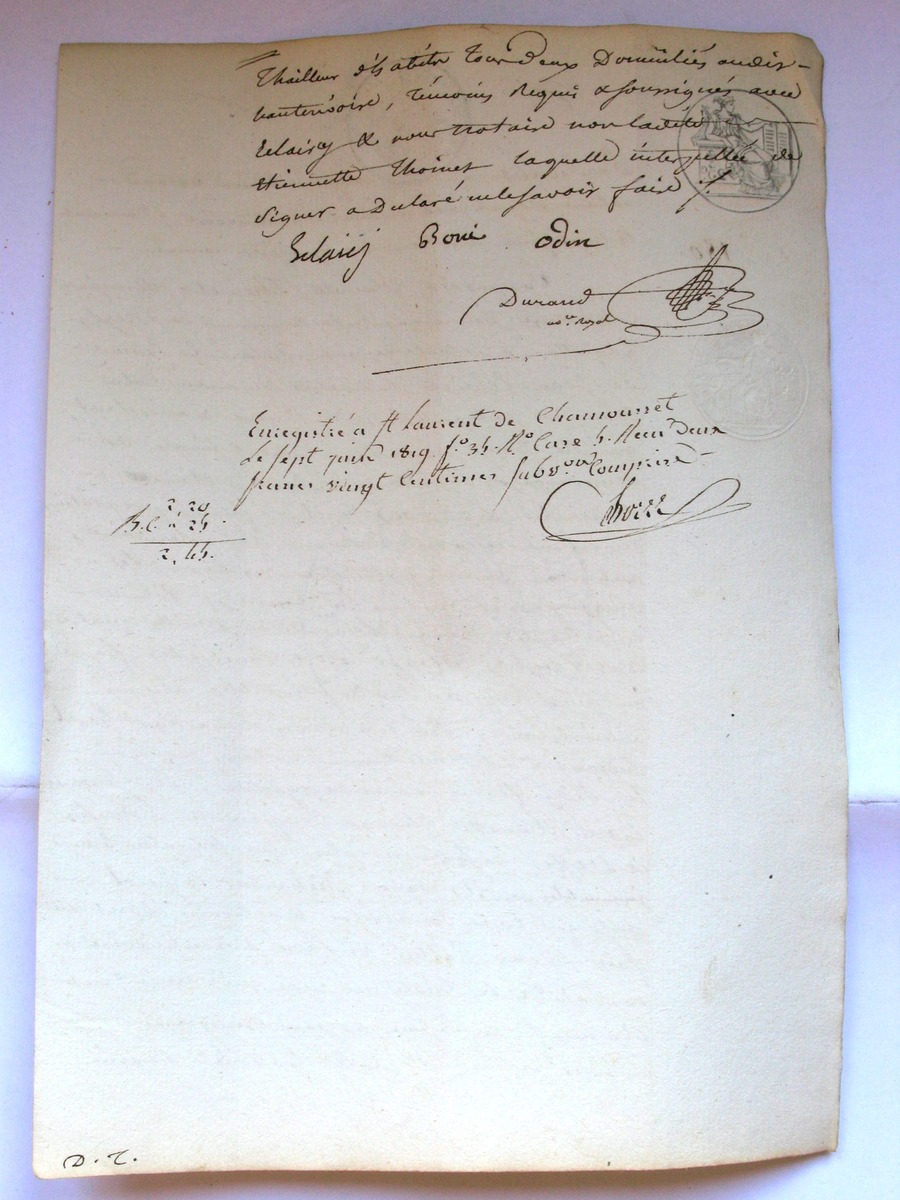 Thailleur d'habits tous deux Domiciliés audit
hauterivoire, témoins Requis & soussignés avec
& nous notaire non ladite
Etiennette Thoinet laquelle interpellée de
signer a Déclaré ne le savoir faire /.
Boué Odin
Durand
no.re Royal
Enregistré à St Laurent de Chamousset
Le sept juin 1819 f.o 34. R.o Case 4. Recu Deux
francs vingt Centimes Subv.on Comprise
2, 20
24
2, 44.
D. T.